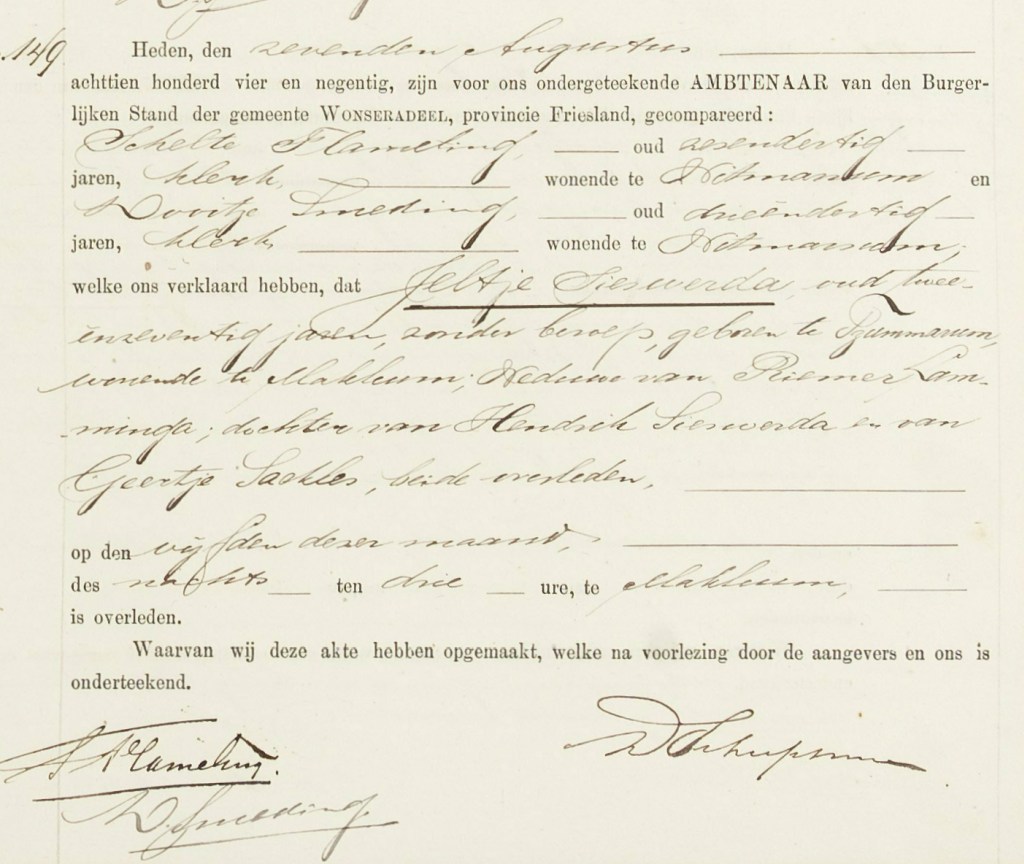 149
Heden, den zevenden Augustus
achttien honderd vier en negentig, zijn voor ons ondergeteekende AMBTENAAR van den Burger-
lijken Stand der gemeente WONSERADEEL, provincie Friesland, gecompareerd:
Schelte Flameling, oud zesendertig
jaren, klerk, wonende te Witmarsum en
Wooitje Smeding, oud drieëndertig
jaren, klerk, wonende te Witmarsum,
welke ons verklaard hebben, dat Jeltje Sieswerda, oud twee-
ënzeventig jaren, zonder beroep, geboren te Tzummarum,
wonende te Makkum; Weduwe van Riemer Lam-
-minga; dochter van Hendrik Sieswerda en van
Geertje Saekles, beide overleden,
op den vijfden dezer maand,
des nachts ten drie ure, te Makkum,
is overleden.
Waarvan wij deze akte hebben opgemaakt, welke na voorlezing door de aangevers en ons is
onderteekend.
S Flameling.
W. Smeding.